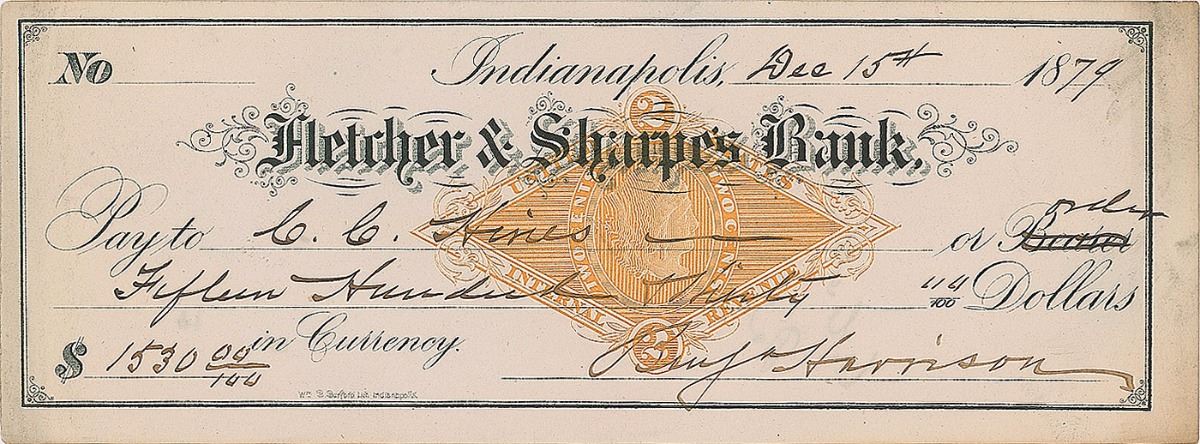 No Indianapolis, Dec 15th 1879
Fletcher & Sharpe's Bank.
2
UNITED STATES
Pay to C. C. Hines — or Bearer order
Fifteen Hundred & Thirty 00/100 Dollars
TWO CENTS
INTERNAL REVENUE
$ 1530 00/100 in Currency.
2
Benj Harrison